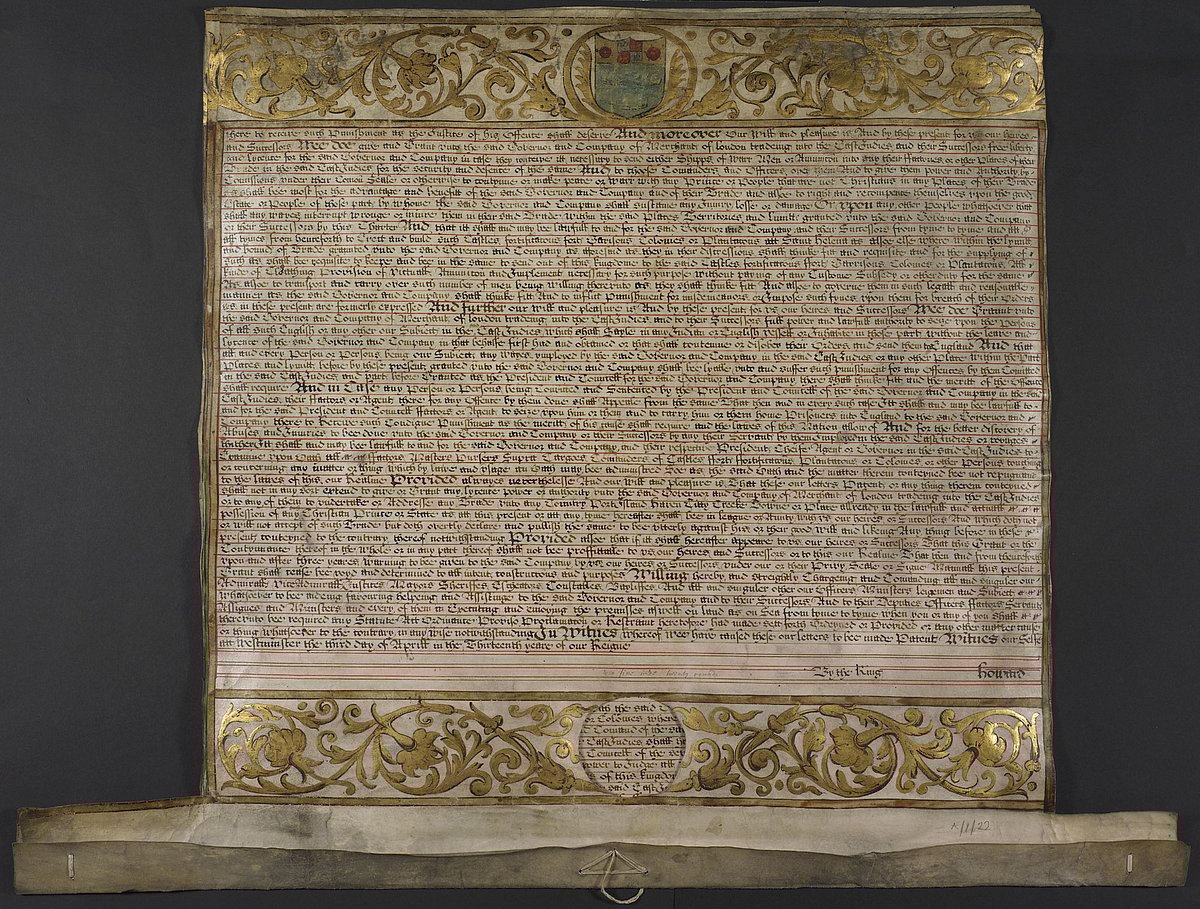 there to receive such Punishment as the Justice of his Offence shall deserve And moreover Our will and pleasure is And by these present for us our heires
and Successors Wee doe give and Grant unto the said Governor and Company of Merchant of london tradeing into the East Indies and their Successors free liberty
and lycence for the said Governor and Company in case they conceive itt necessary to send either Shipps of Warr Men or Amunicon into any their ffactories or other Places of their
Trade in the said East Indies for the security and defence of the same And to choose Comanders and Officers over them And to give them power and Authority by
Comissions under their Comon Seale or otherwise to contynue or make peace or Warr with any Prince or People that are not Christians in any Places of their Trade
as shall bee most for the advantage and benefitt of the said Governor and Company and of their Trade and alsoe to right and recompence themselves upon the goods
Estate or People of those part by whome the said Governor and Company shall sustaine any Injury losse or damage Or upon any other People whatsoever that
shall any wayes interrupt wronge or injure them in their said Trade within the said Places Territories and limitt granted unto the said Governor and Company
or their Successors by this Charter And that itt shall and may bee lawfull to and for the said Governor and Company and their Successors from tyme to tyme and att
all tymes from henceforth to Erect and build such Castles fortificacons fort Garrisons Colonies or Plantacons att Saint Helena as alsoe else where within the lymitt
and bound of Trade granted unto the said Governor and Company as aforesaid as they in their discressions shall thinke fitt and requisite and for the supplying of
such as shall bee requisite to keepe and bee in the same to send out of this kingdome to the said Castles fortificacons ffort Garrisons Colonies or Plantacons All
kinde of Cloathing Provision of Victuall Amunicon and Implement necessary for such purpose without paying of any Custome Subsidy or other duty for the same
As alsoe to transport and carry over such number of men being willing thereunto as they shall thinke fitt And alsoe to governe them in such legall and reasonable
manner as the said Governor and Company shall thinke fitt And to inflict Punishment for misdemeanors or Impose such fynes upon them for breach of their Orders
as in these present are formerly expressed And further our will and pleasure is And by these present for us our heires and Successors Wee doe Graunt unto
the said Governor and Company of Merchant of london tradeing into the East Indies and to their Successors full power and lawfull authority to seize upon the Persons
of all such English or any other our Subject in the East Indies which shall Sayle in any Indian or English vessell or Inhabite in those part without the leave and
lycence of the said Governor and Company in that behalfe first had and obtained or that shall contemne or disobey their Orders and send them to England And that
all and every Person or Persons being our Subject any wayes imployed by the said Governor and Company in the said East Indies or any other Place within the Part
Places and lymitt before by these present granted unto the said Governor and Company shall bee lyable unto and suffer such Punishment for any Offences by them Comitted
in the said East Indies and part before Granted as the President and Councell for the said Governor and Company there shall thinke fitt and the meritt of the Offence
shall require And in Case any Person or Persons being Convicted and Sentenced by the President and Councell of the said Governor and Company in the said
East Indies their ffactors or Agent there for any Offence by them done shall Appeale from the same That then and in every such case Itt shall and may bee lawfull to
and for the said President and Councell ffactors or Agent to seize upon him or them and to carry him or them home Prisoners into England to the said Governor and
Company there to Receive such Condigne Punishment as the meritt of his cause shall require and the lawes of this Nation allow of And for the better discovery of
Abuses and Injuries to bee done unto the said Governor and Company or their Successors by any their Servant by them Imployed in the said East Indies or voyages
thither Itt shall and may bee lawfull to and for the said Governor and Company and their respective President Cheife Agent or Governor in the said East Indies to
Examine upon Oath all ffactors Masters Pursers Supra Cargoes Comanders of Castles ffort fortificacons Plantacons or Colonies or other Persons touching
or concerning any matter or thing which by lawe and usage an Oath may bee administred Soe as the said Oath and the matter therein conteyned bee not repugnant
to the lawes of this our Realme Provided alwayes neverthelesse And our will and pleasure is That these our letters Patent or any thing therein conteyned
shall not in any sort extend to give or Grant any lycence power or authority unto the said Governor and Company of Merchant of london tradeing into the East Indies
or to any of them to undertake or Addresse any Trade unto any Country Port Island Haven Citty Creeke Towne or Place already in the lawfull and actuall
possession of any Christian Prince or State as att this present or att any tyme hereafter shall bee in league or Amity with us our heires or Successors And which doth not
or will not accept of such Trade but doth overtly declare and publish the same to bee utterly against his or their good will and likeing Any thing before in these
present conteyned to the contrary thereof notwithstanding Provided alsoe that if itt shall hereafter appeare to us our heires or Successors That this Grant or the
Contynuance thereof in the whole or in any part thereof shall not bee proffitable to us our heires and Successors or to this our Realme That then and from thenceforth
upon and after three yeares warning to bee given to the said Company by us our heires or Successors under our or their Privy Seale or Signe Manuall this present
Grant shall cease bee voyd and determined to all intent constructions and purposes Willing hereby and streightly Chargeing and Comanding all and singuler our
Admiralls ViceAdmiralls Justices Mayors Sheriffes Escheators Constables Bayliffes And all and singuler other our Officers Ministers leigemen and Subject
whatsoever to bee aideing favouring helpeing and Assisting to the said Governor and Company and to their Successors And to their Deputies Officers ffactors Servants
Assignes and Ministers and every of them in Executing and enjoying the premisses aswell on land as on Sea from tyme to tyme when you or any of you shall
thereunto bee required any Statute Act Ordinance Proviso Proclamacon or Restraint heretofore had made sett forth Ordeyned or Provided or any other matter cause
or thing whatsoever to the contrary in any wise notwithstanding In Witnes whereof wee have caused these our letters to bee made Patent Witnes our Selfe
att Westminster the third day of Aprill in the Thirteenth yeare of our Reigne
By the King Howard
as the said
or Colonies where
Comand of the sa
East Indies shall
Councell of the
power to Judge all
of this kingdo
said East I
A/1/22